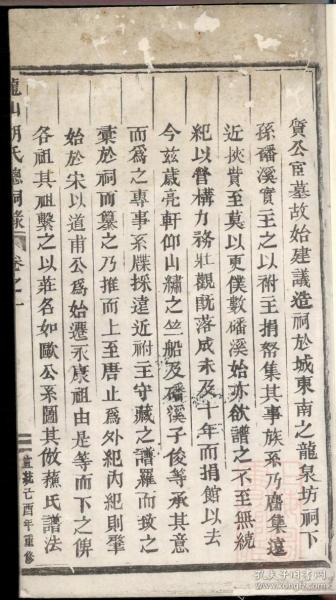 質公宦墓故始建議造祠於城東南之龍泉坊祠下
孫磻溪實主之以祔主捐帑集其事族系乃麕集遠
近挾貲至莫以更僕數磻溪始亦欲譜之不至無統
紀以督構力務壯觀既落成未及十年而捐館以去
今茲歲亮軒仰山繡之竺船及磻溪子俊等承其意
而為之專事系牒採遠近祔主守藏之譜羅而致之
彙於祠而纂之乃推而上至唐止為外紀內紀則肇
始於宋以道甫公為始遷永康祖由是等而下之俾
各祖其祖繫之以莊名如歐公系圖其倣蘇氏譜法
龍山胡氏總祠錄
卷之一
宣統己酉年重修
孔夫子舊書網